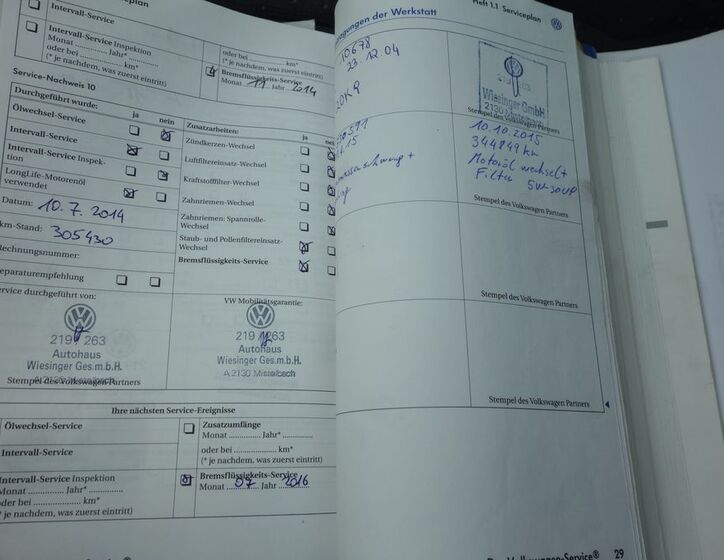 Intervall-Service
Intervall-Service Inspektion
Monat ............. Jahr*
oder bei .............. km*
(* je nachdem, was zuerst eintritt)
oder bei .............. km*
(* je nachdem, was zuerst eintritt)
Bremsflüssigkeits-Service
Monat 11 Jahr 2014
Service-Nachweis 10
Durchgeführt wurde:
ja nein
Ölwechsel-Service
Intervall-Service
Intervall-Service Inspek-
tion
LongLife-Motorenöl
verwendet
Datum: 10.7.2014
km-Stand: 305430
Rechnungsnummer:
eparaturempfehlung
ervice durchgeführt von:
Zusatzarbeiten:
ja
Zündkerzen-Wechsel
Luftfiltereinsatz-Wechsel
Kraftstofffilter-Wechsel
Zahnriemen-Wechsel
Zahnriemen: Spannrolle-
Wechsel
Staub- und Pollenfiltereinsatz-
Wechsel
Bremsflüssigkeits-Service
VW Mobilitätsgarantie:
263
Autohaus
Wiesinger Ges.m.b.H.
A 2130 Mistelbach
Stempel des Volkswagen Partners
263
Autohaus
Wiesinger Ges.m.b.H.
A 2130 Mistelbach
Ihre nächsten Service-Ereignisse
Ölwechsel-Service
Intervall-Service
Intervall-Service Inspektion
Monat ............. Jahr*
oder bei .............. km*
* je nachdem, was zuerst eintritt)
Zusatzumfänge
Monat ............. Jahr*
oder bei .............. km*
(* je nachdem, was zuerst eintritt)
Bremsflüssigkeits-Service
Monat 07 Jahr 2016
Heft 1.1 Serviceplan
gungen der Werkstatt
10678
23.12.04
Wiesinger GmbH
2130
Stempel des Volkswagen Partners
10.10.2015
344849 km
Motoröl wechsel +
Filter 5W30
Stempel des Volkswagen Partners
Stempel des Volkswagen Partners
Stempel des Volkswagen Partners
Volkswagen-Service®
29